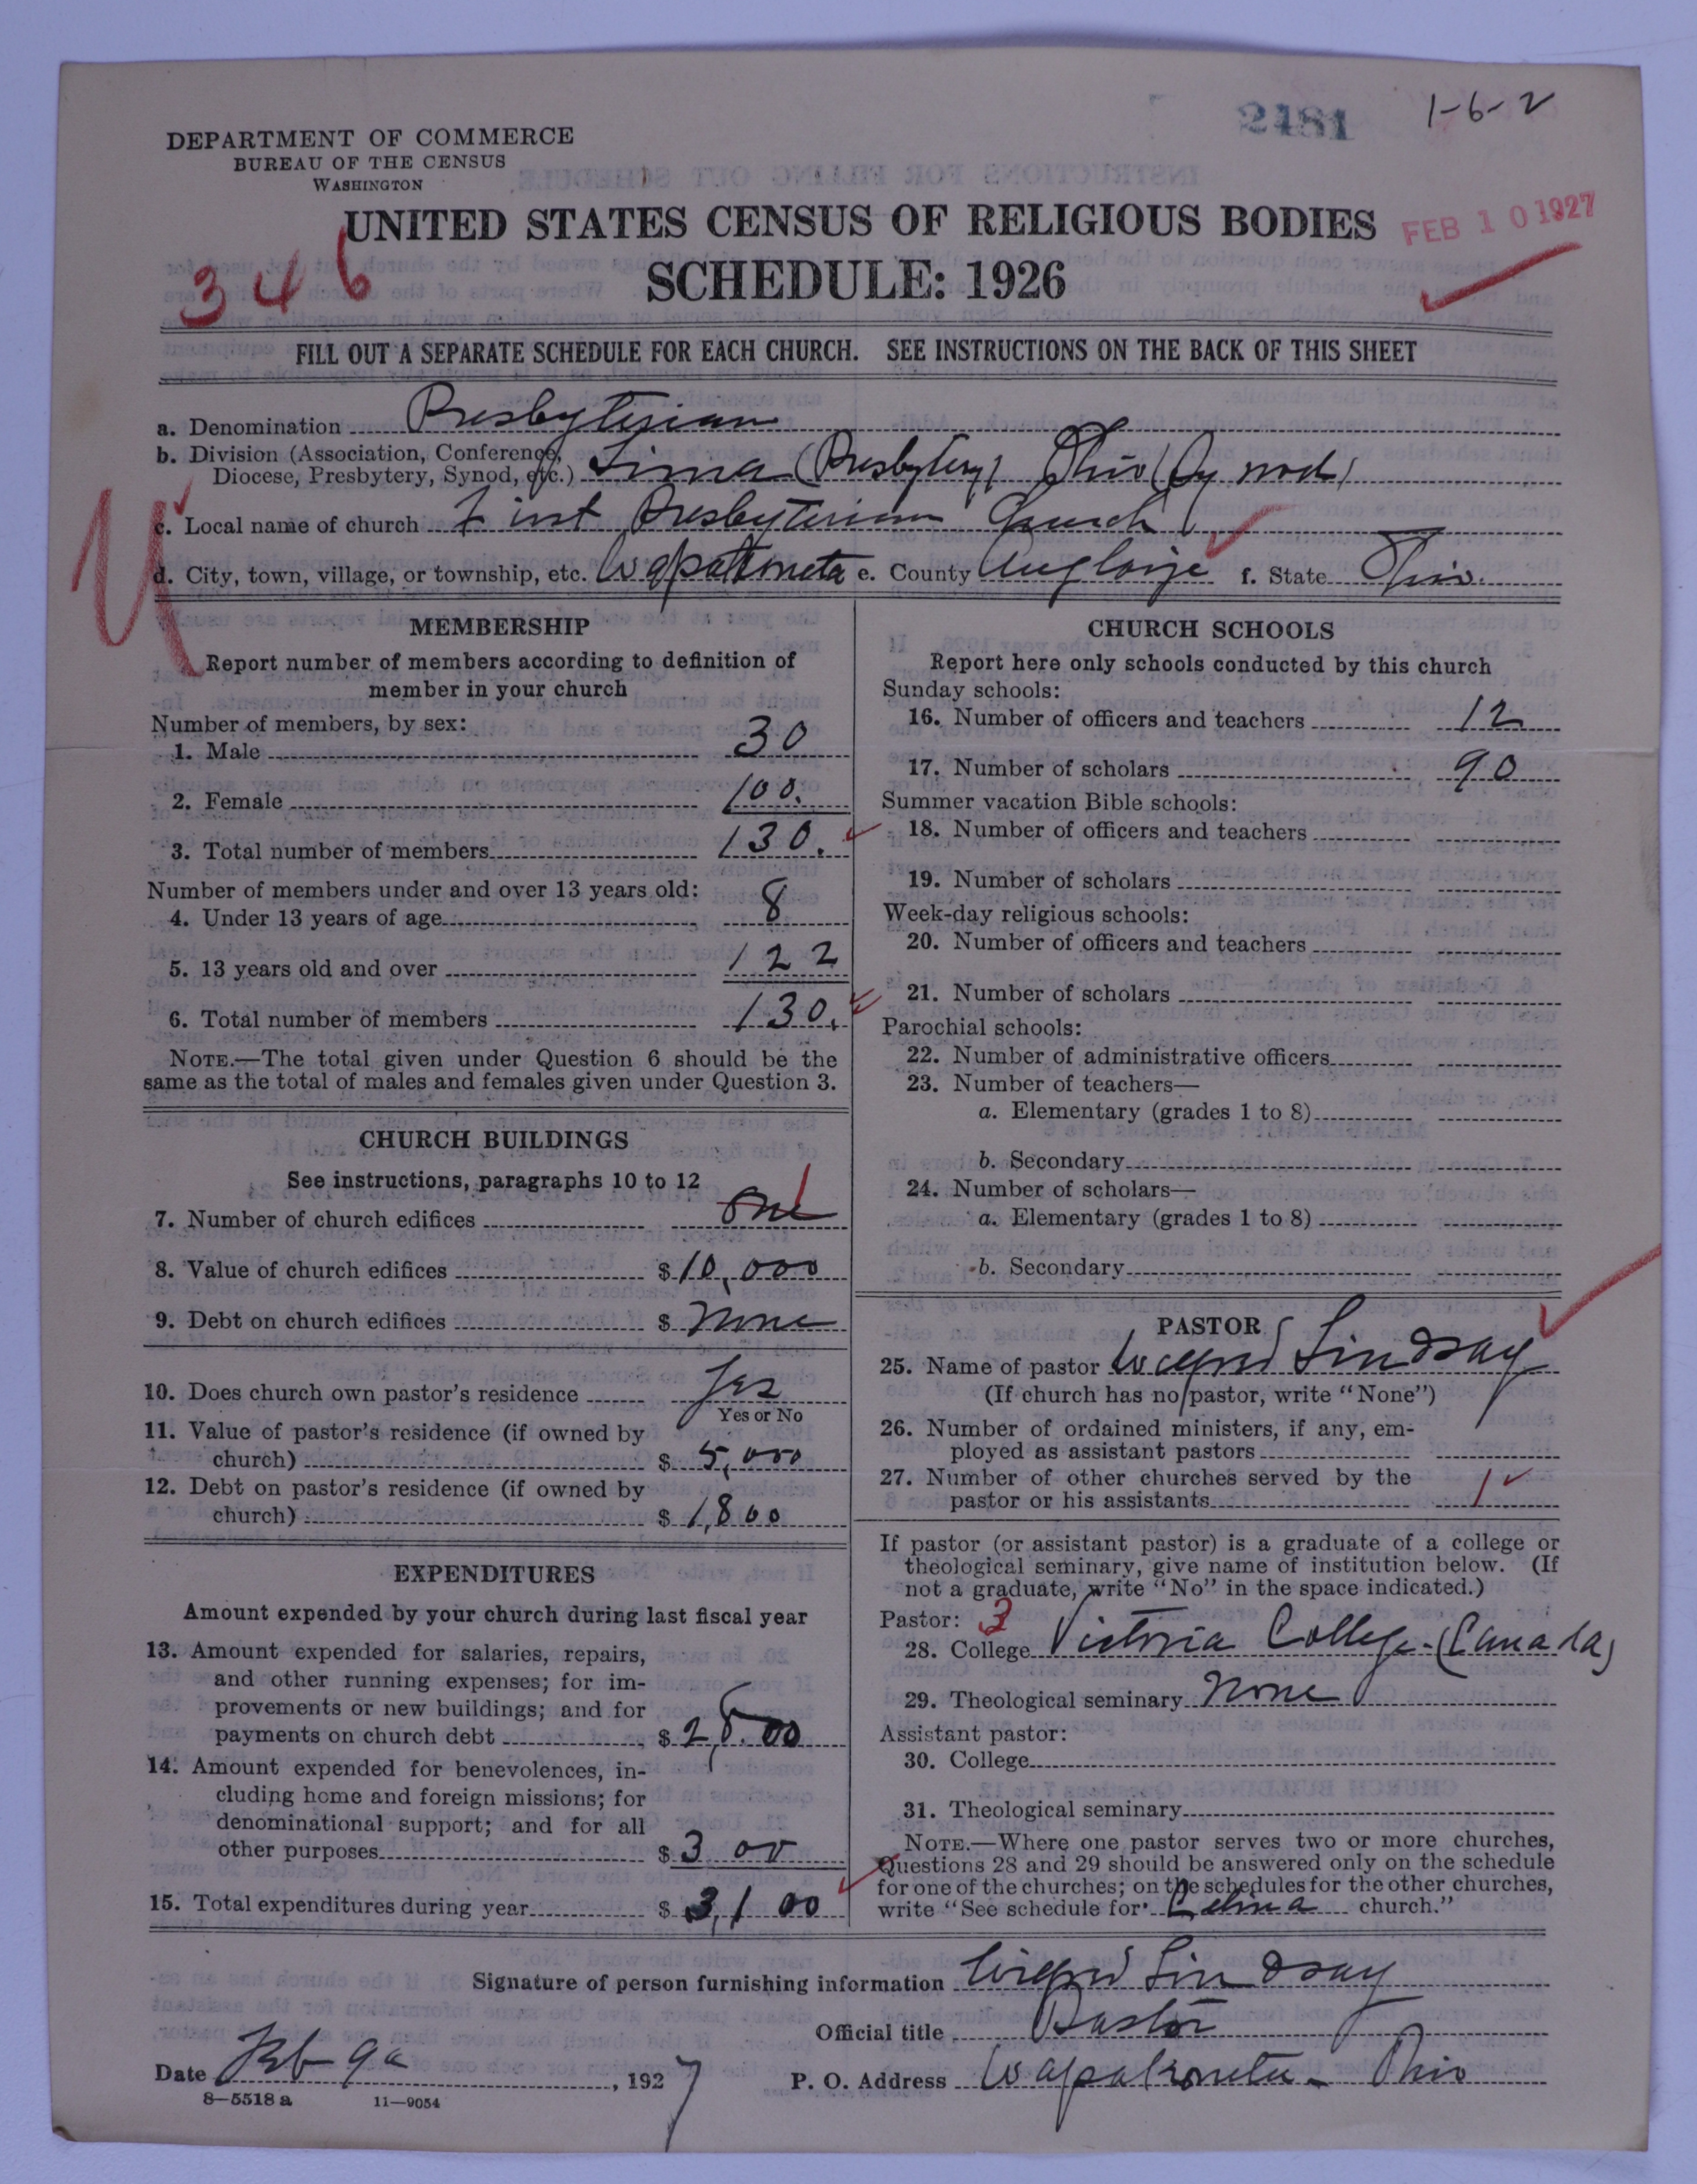 2481
1-6-2
DEPARTMENT OF COMMERCE
BUREAU OF THE CENSUS
WASHINGTON
UNITED STATES CENSUS OF RELIGIOUS BODIES
FEB 10 1927
346
SCHEDULE: 1926
FILL OUT A SEPARATE SCHEDULE FOR EACH CHURCH. SEE INSTRUCTIONS ON THE BACK OF THIS SHEET
a. Denomination Presbyterian
b. Division (Association, Conference,
Diocese, Presbytery, Synod, etc.) Lima (Presbytery) Ohio (Synod)
c. Local name of church First Presbyterian Church
d. City, town, village, or township, etc. Wapakoneta e. County Auglaize f. State Ohio.
MEMBERSHIP
Report number of members according to definition of
member in your church
Number of members, by sex:
1. Male 30
2. Female 100.
3. Total number of members 130.
Number of members under and over 13 years old:
4. Under 13 years of age 8
5. 13 years old and over 122
6. Total number of members 130.
NOTE.—The total given under Question 6 should be the
same as the total of males and females given under Question 3.
CHURCH BUILDINGS
See instructions, paragraphs 10 to 12
7. Number of church edifices one 1
8. Value of church edifices $ 10,000
9. Debt on church edifices $ None
10. Does church own pastor's residence Yes
Yes or No
11. Value of pastor's residence (if owned by
church) $ 5,000
12. Debt on pastor's residence (if owned by
church) $ 1,800
EXPENDITURES
Amount expended by your church during last fiscal year
13. Amount expended for salaries, repairs,
and other running expenses; for im-
provements or new buildings; and for
payments on church debt $ 2,800
14. Amount expended for benevolences, in-
cluding home and foreign missions; for
denominational support; and for all
other purposes $ 300
15. Total expenditures during year $ 3,100
CHURCH SCHOOLS
Report here only schools conducted by this church
Sunday schools:
16. Number of officers and teachers 12
17. Number of scholars 90
Summer vacation Bible schools:
18. Number of officers and teachers
19. Number of scholars
Week-day religious schools:
20. Number of officers and teachers
21. Number of scholars
Parochial schools:
22. Number of administrative officers
23. Number of teachers—
a. Elementary (grades 1 to 8)
b. Secondary
24. Number of scholars—
a. Elementary (grades 1 to 8)
b. Secondary
PASTOR
25. Name of pastor Wilfrid Lindsay
(If church has no pastor, write "None")
26. Number of ordained ministers, if any, em-
ployed as assistant pastors
27. Number of other churches served by the
pastor or his assistants 1
If pastor (or assistant pastor) is a graduate of a college or
theological seminary, give name of institution below. (If
not a graduate, write "No" in the space indicated.)
Pastor: 3
28. College Victoria College-(Canada)
29. Theological seminary None
Assistant pastor:
30. College
31. Theological seminary
NOTE.—Where one pastor serves two or more churches,
Questions 28 and 29 should be answered only on the schedule
for one of the churches; on the schedules for the other churches,
write "See schedule for Celina church."
Signature of person furnishing information Wilfrid Lindsay
Official title Pastor
Date Feb 9, 1927
P. O. Address Wapakoneta - Ohio
8—5518 a 11—9054